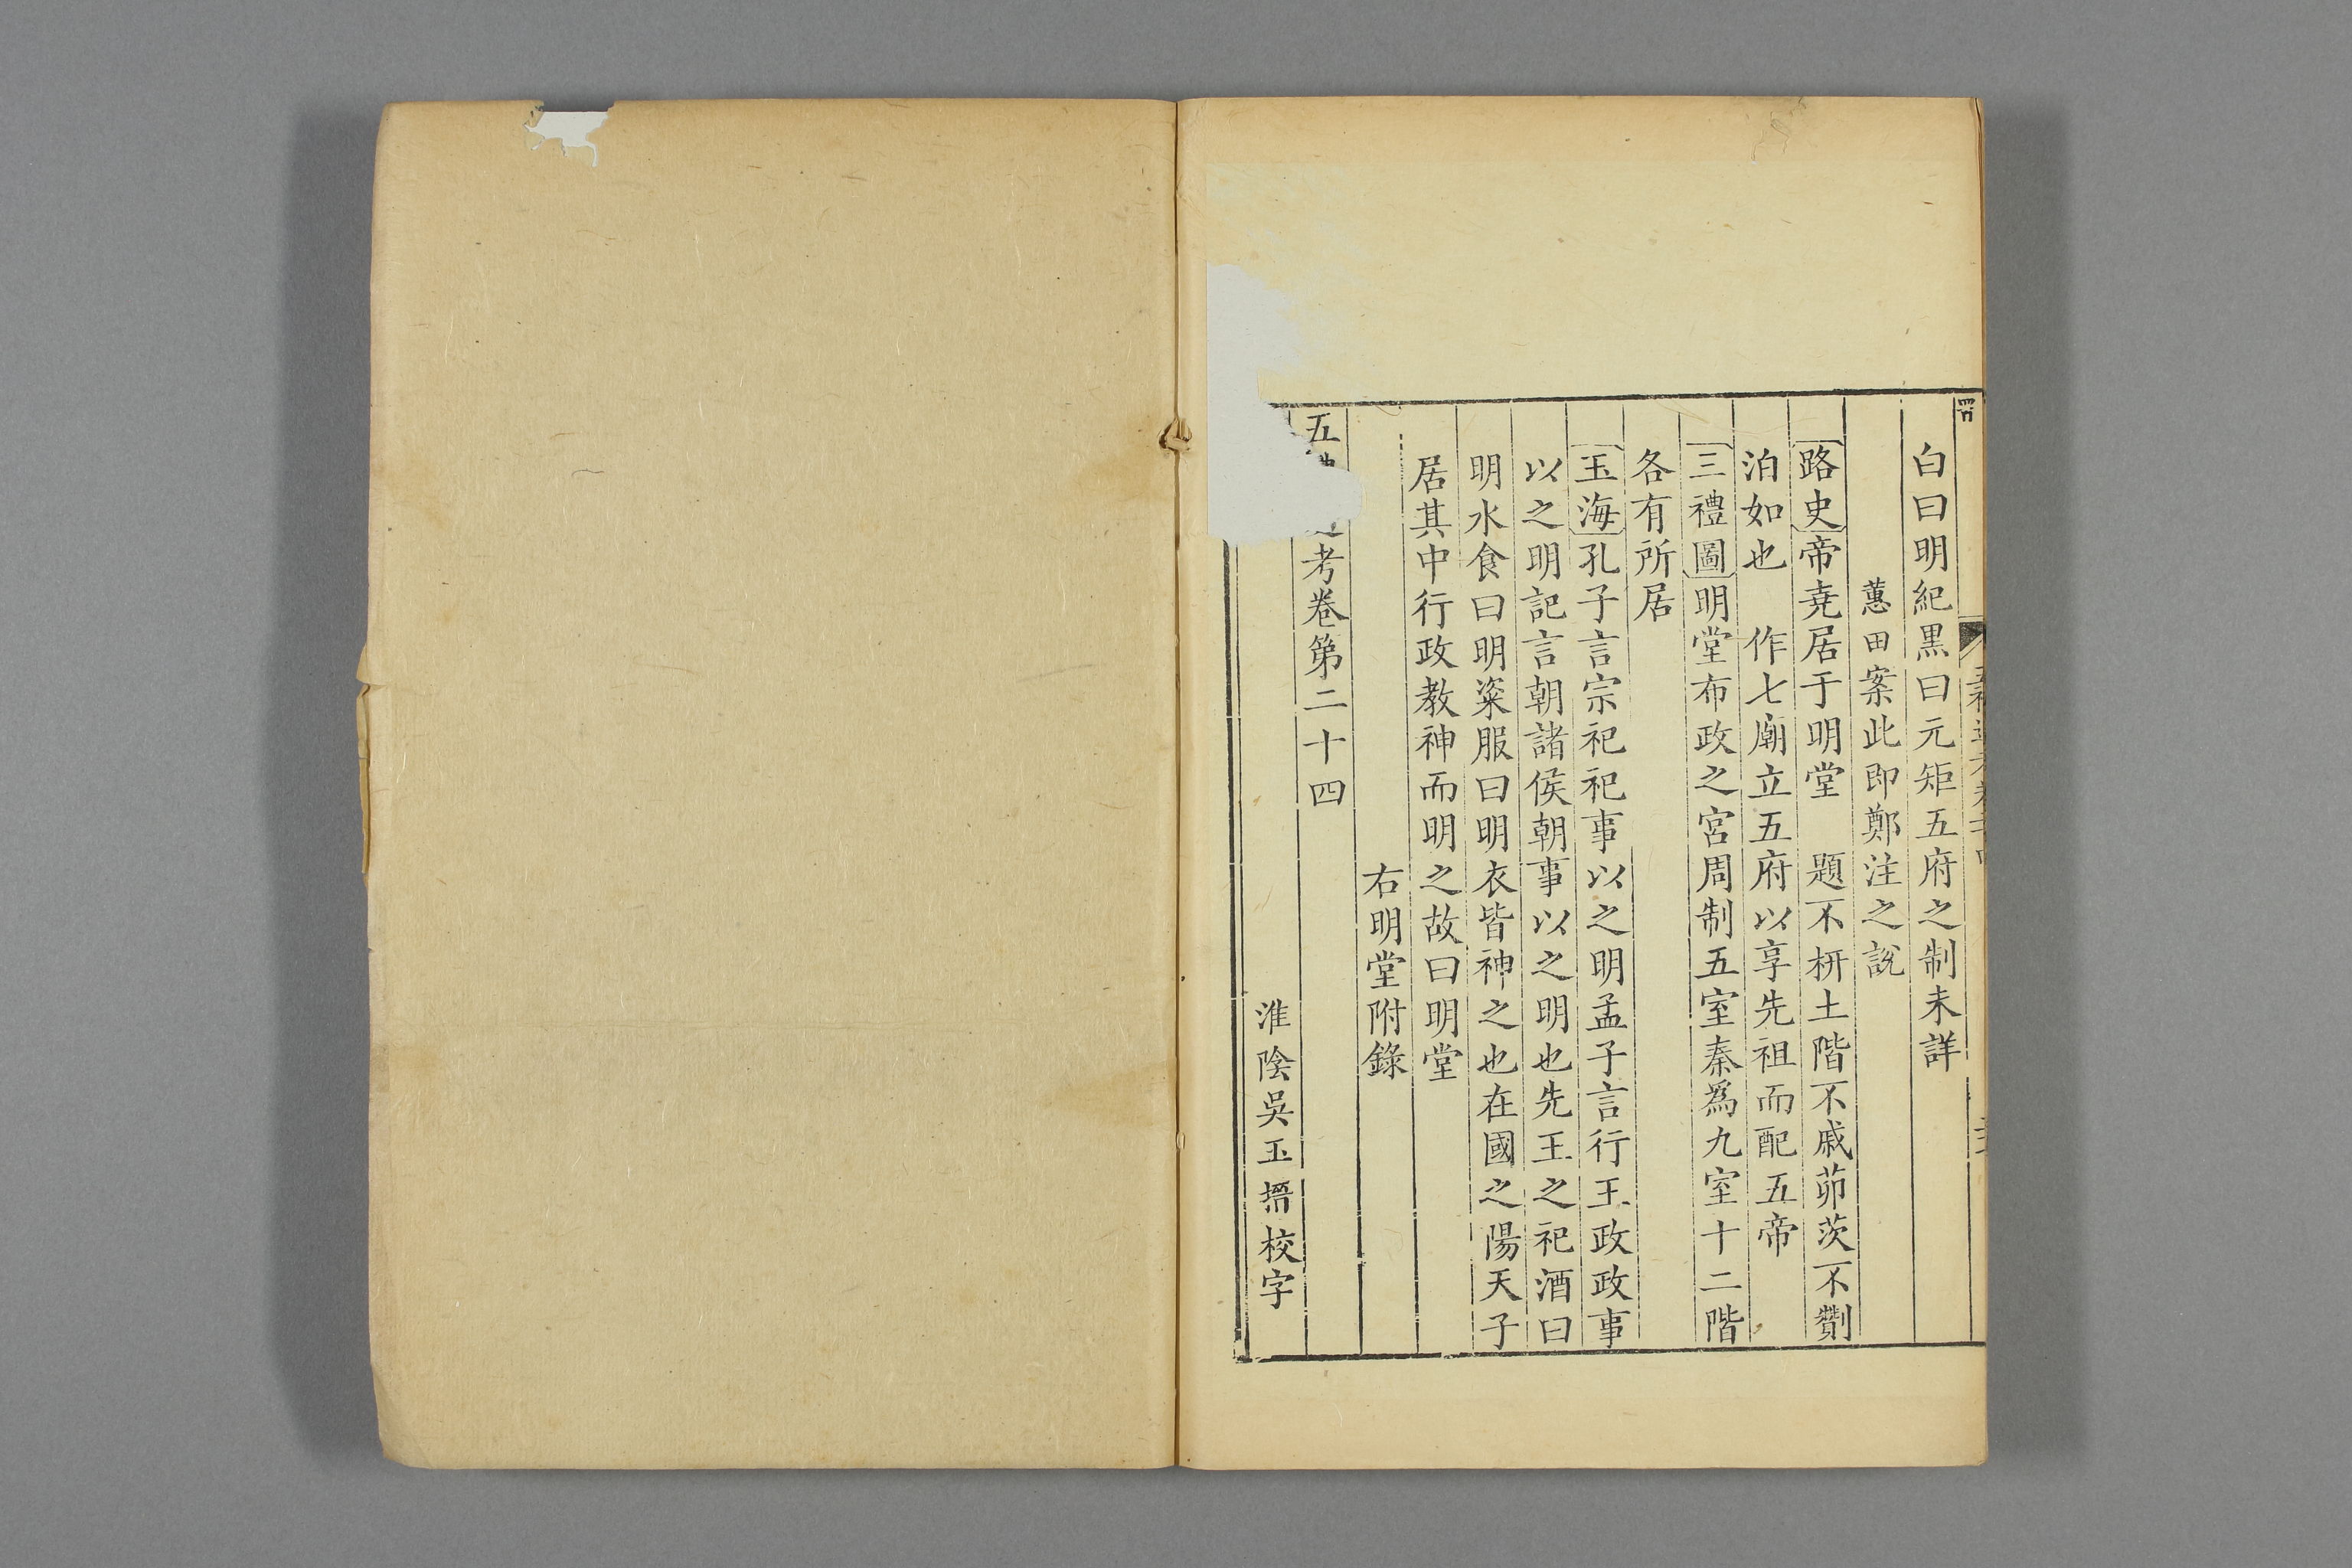 白曰明紀黒曰元矩五府之制未詳
蕙田案此即鄭注之說
路史帝堯居于明堂 題不枅土階不戚茆茨不劗
泊如也 作七廟立五府以享先祖而配五帝
三禮圖明堂布政之宮周制五室秦爲九室十二階
各有所居
玉海孔子言宗祀祀事以之明孟子言行王政政事
以之明記言朝諸侯朝事以之明也先王之祀酒曰
明水食曰明粢服曰明衣皆神之也在國之陽天子
居其中行政教神而明之故曰明堂
右明堂附錄
五 考卷第二十四
淮陰吳玉搢校字